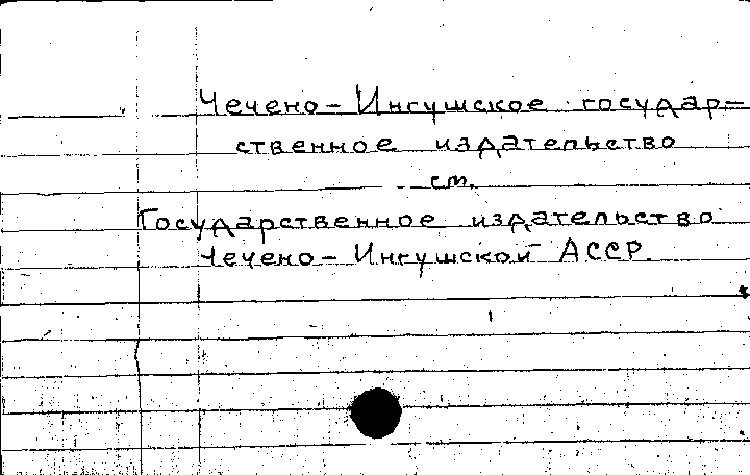 Чечено-Ингушское государ-
ственное издательство
см.
Государственное издательство
Чечено-Ингушской АССР.